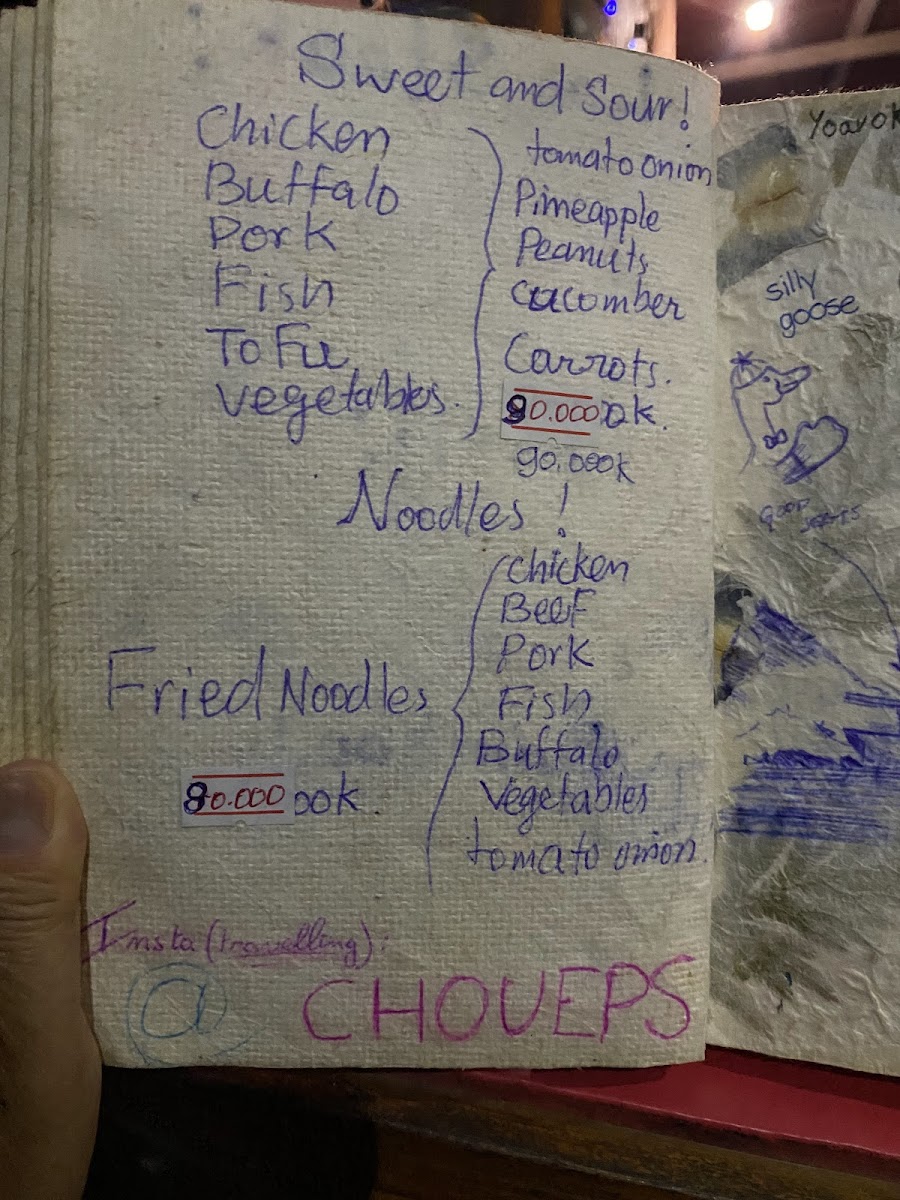 Sweet and Sour!
Chicken
Buffalo
Pork
Fish
ToFu
vegetables.
tomato onion
Pimeapple
Peanuts
cucomber
Carrots.
90.000 ok.
90.000k
Noodles !
Fried Noodles
80.000 ook.
chicken
Beef
Pork
Fish
Buffalo
Vegetables
tomato onion.
Insta (travelling):
@ CHOUEPS
silly
goose